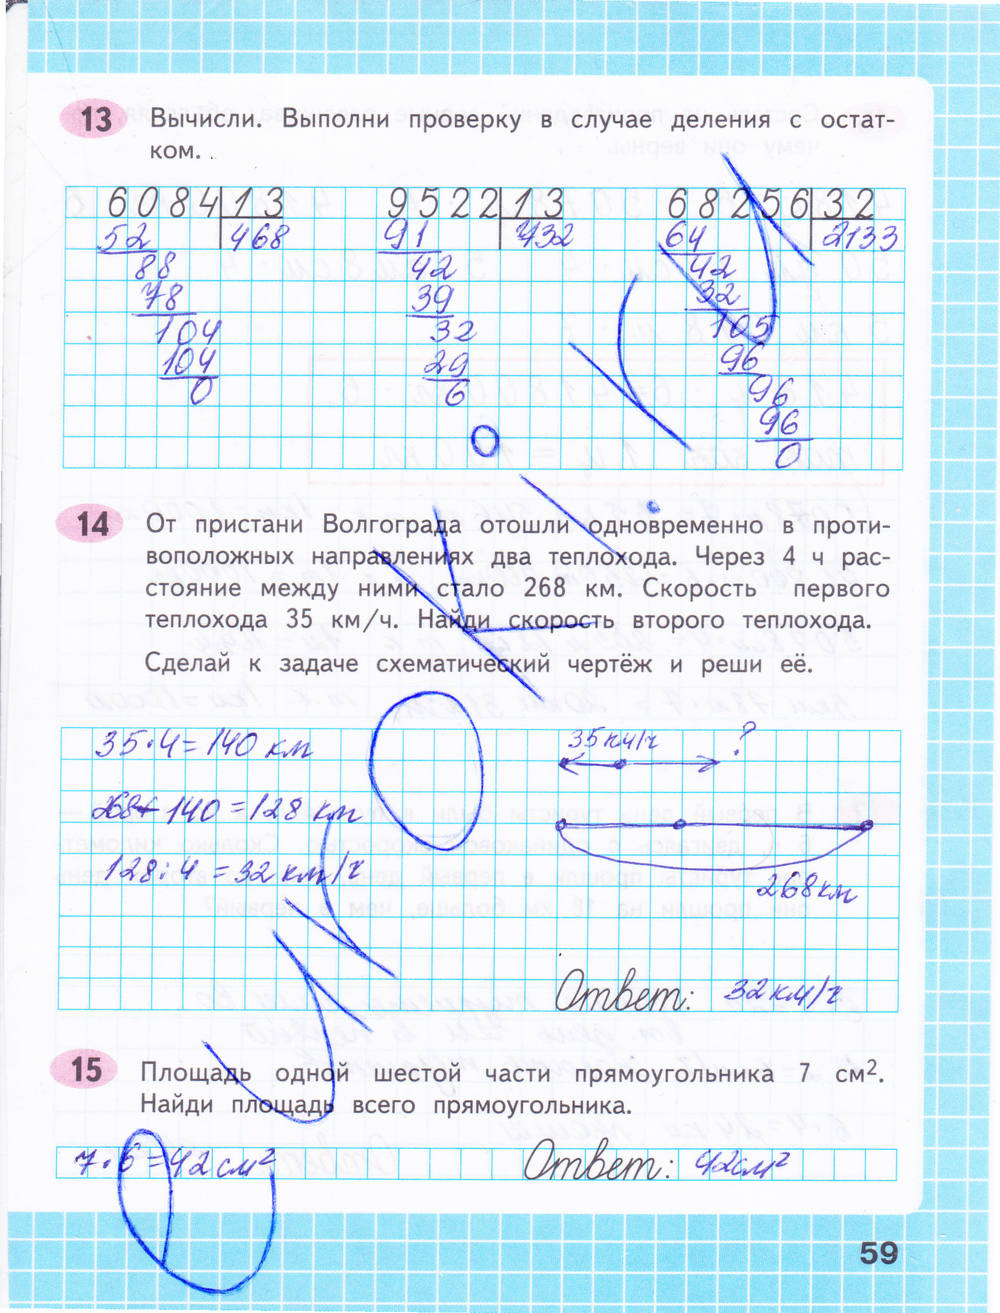 13 Вычисли. Выполни проверку в случае деления с остат-
ком.
6084 13
52 468
88
78
104
104
0
9522 13
91 732
42
39
32
29
6
68256 32
64 2133
42
32
105
96
96
96
0
14 От пристани Волгограда отошли одновременно в проти-
воположных направлениях два теплохода. Через 4 ч рас-
стояние между ними стало 268 км. Скорость первого
теплохода 35 км/ч. Найди скорость второго теплохода.
Сделай к задаче схематический чертёж и реши её.
35·4=140 км
35км/ч ?
268-140=128 км
128:4=32 км/ч
268км
Ответ: 32км/ч
15 Площадь одной шестой части прямоугольника 7 см².
Найди площадь всего прямоугольника.
7·6=42см² Ответ: 42см²
59